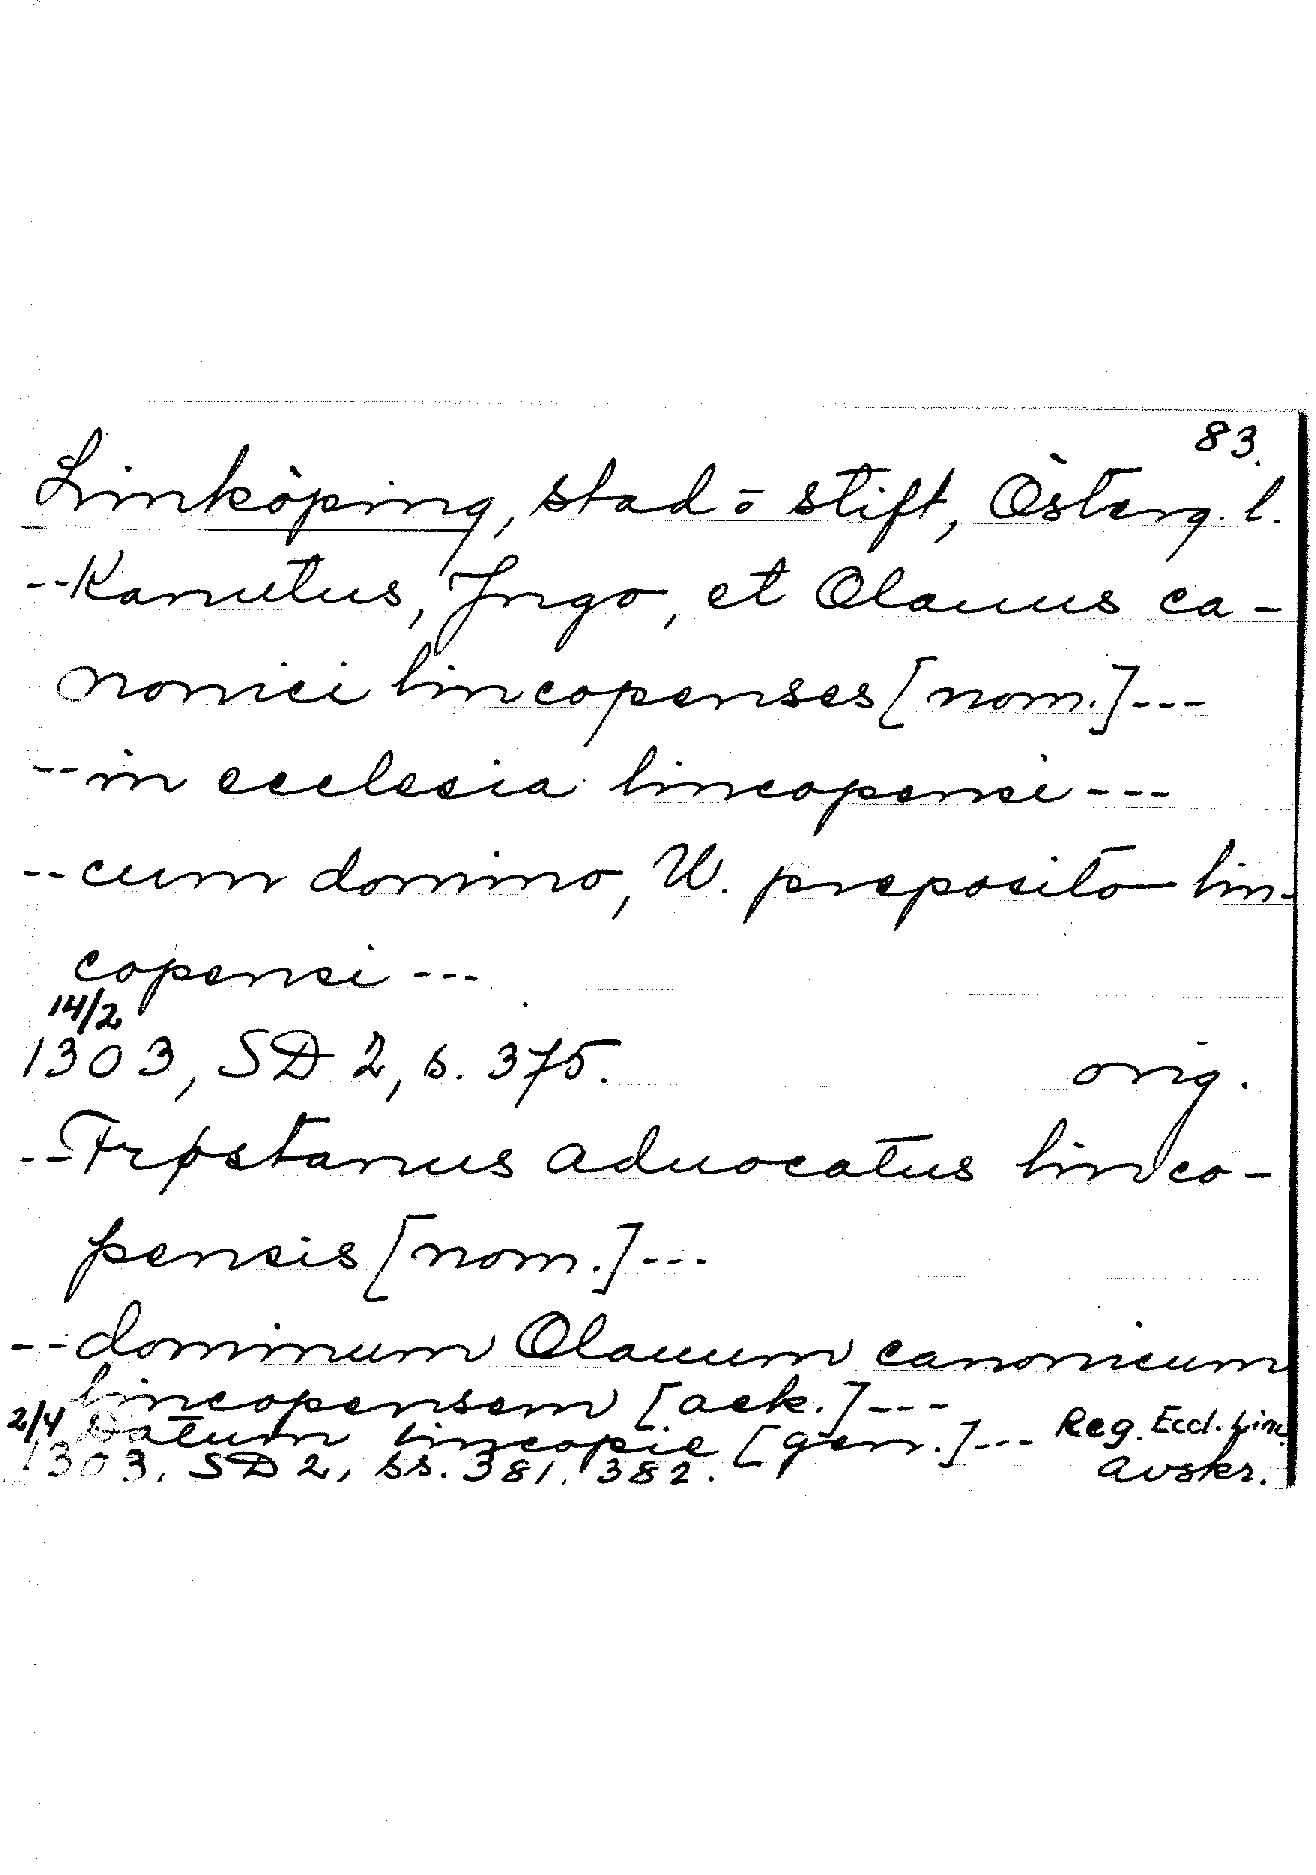 83.
Linköping, stad o stift, Österg. l.
--Kanutus, Jngo, et Olauus ca-
nonici lincopenses [nom.]---
--in ecclesia lincopensi---
--cum domino, W. preposito lin-
copensi---
14/2
1303, SD 2, s. 375. orig.
-- aduocatus linco-
pensis [nom.]---
--dominum Olauum canonicum
lincopensem [ack.]---
Datum lincopie [gen.]--- Reg. Eccl. Linc.
2/4
1303, SD 2, ss. 381, 382. avskr.